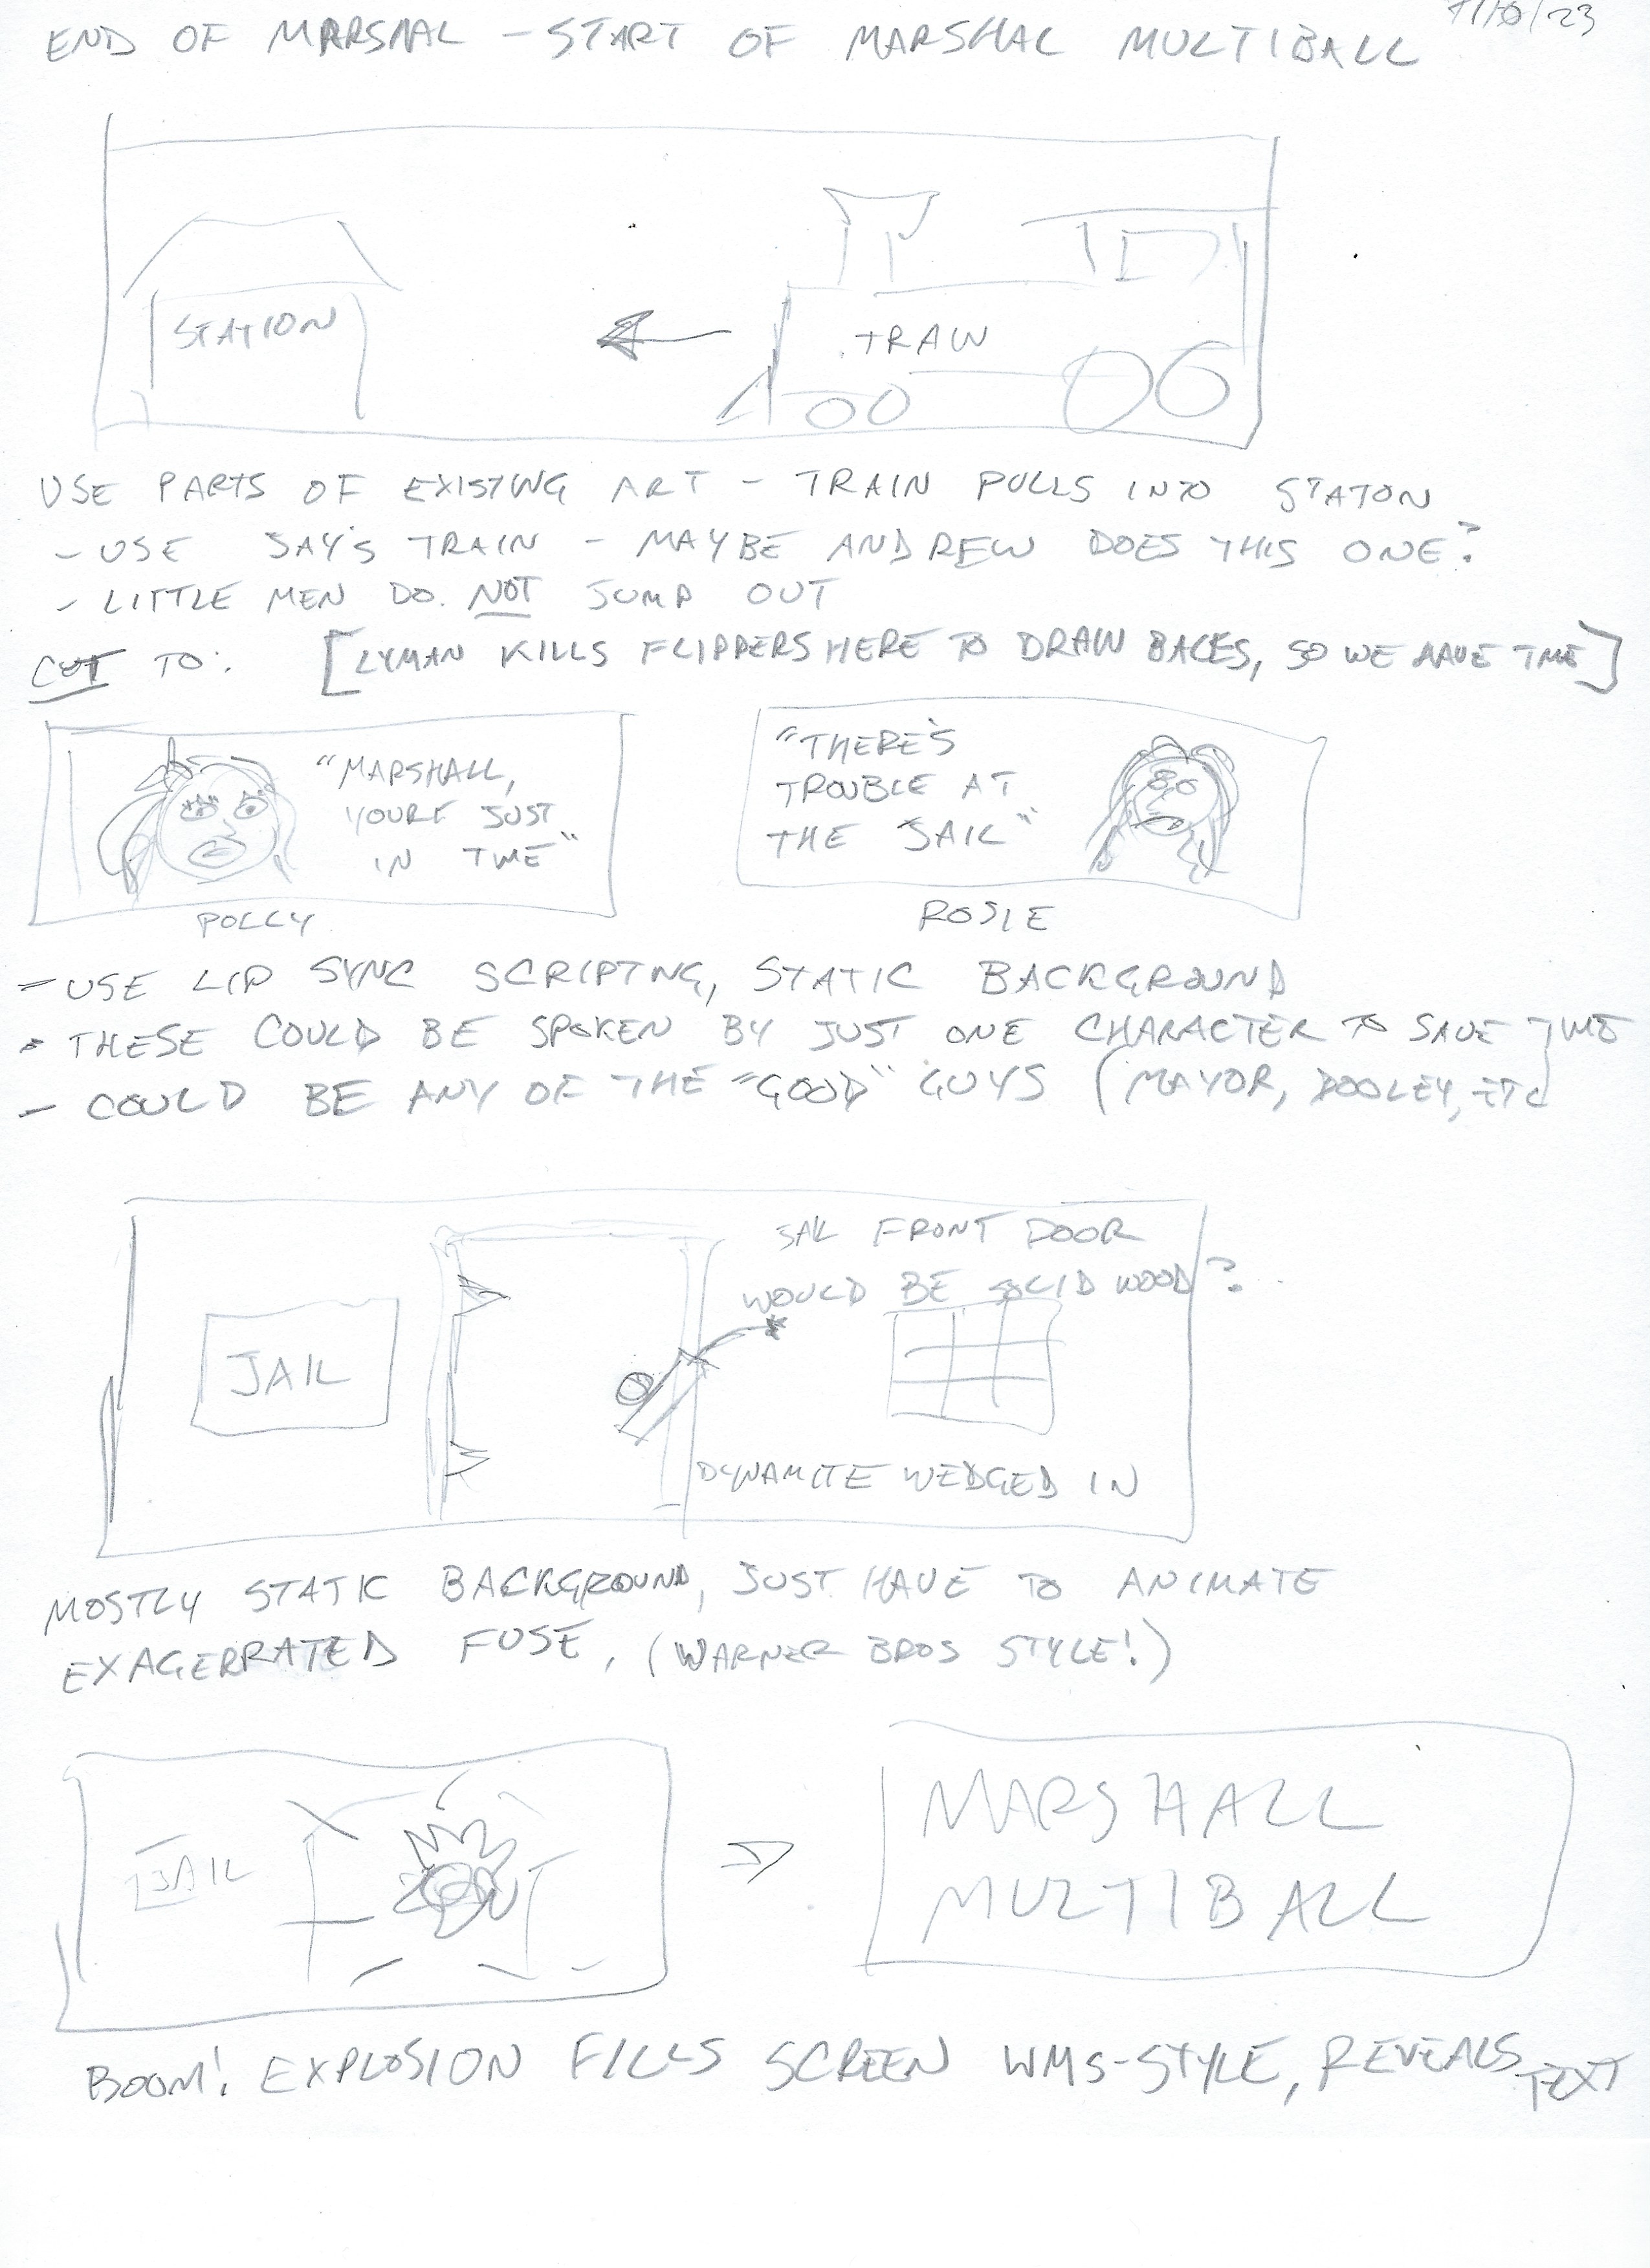 11/8/23
END OF MARSHAL - START OF MARSHAL MULTIBALL
STATION
TRAIN
USE PARTS OF EXISTING ART - TRAIN PULLS INTO STATON
- USE JAY'S TRAIN - MAYBE ANDREW DOES THIS ONE?
- LITTLE MEN DO NOT JUMP OUT
CUT TO: [LYMAN KILLS FLIPPERS HERE TO DRAIN BALLS, SO WE HAVE TIME]
"MARSHALL,
YOURE JUST
IN TIME"
POLLY
"THERE'S
TROUBLE AT
THE JAIL"
ROSIE
- USE LIP SYNC SCRIPTING, STATIC BACKGROUND
- THESE COULD BE SPOKEN BY JUST ONE CHARACTER TO SAVE TIME
- COULD BE ANY OF THE "GOOD" GUYS (MAYOR, DOOLEY, ETC)
JAIL FRONT DOOR
WOULD BE SOLID WOOD?
JAIL
DYNAMITE WEDGED IN
MOSTLY STATIC BACKGROUND, JUST HAVE TO ANIMATE
EXAGERRATED FUSE. (WARNER BROS STYLE!)
JAIL
MARSHALL
MULTIBALL
BOOM! EXPLOSION FILLS SCREEN WMS-STYLE, REVEALS TEXT